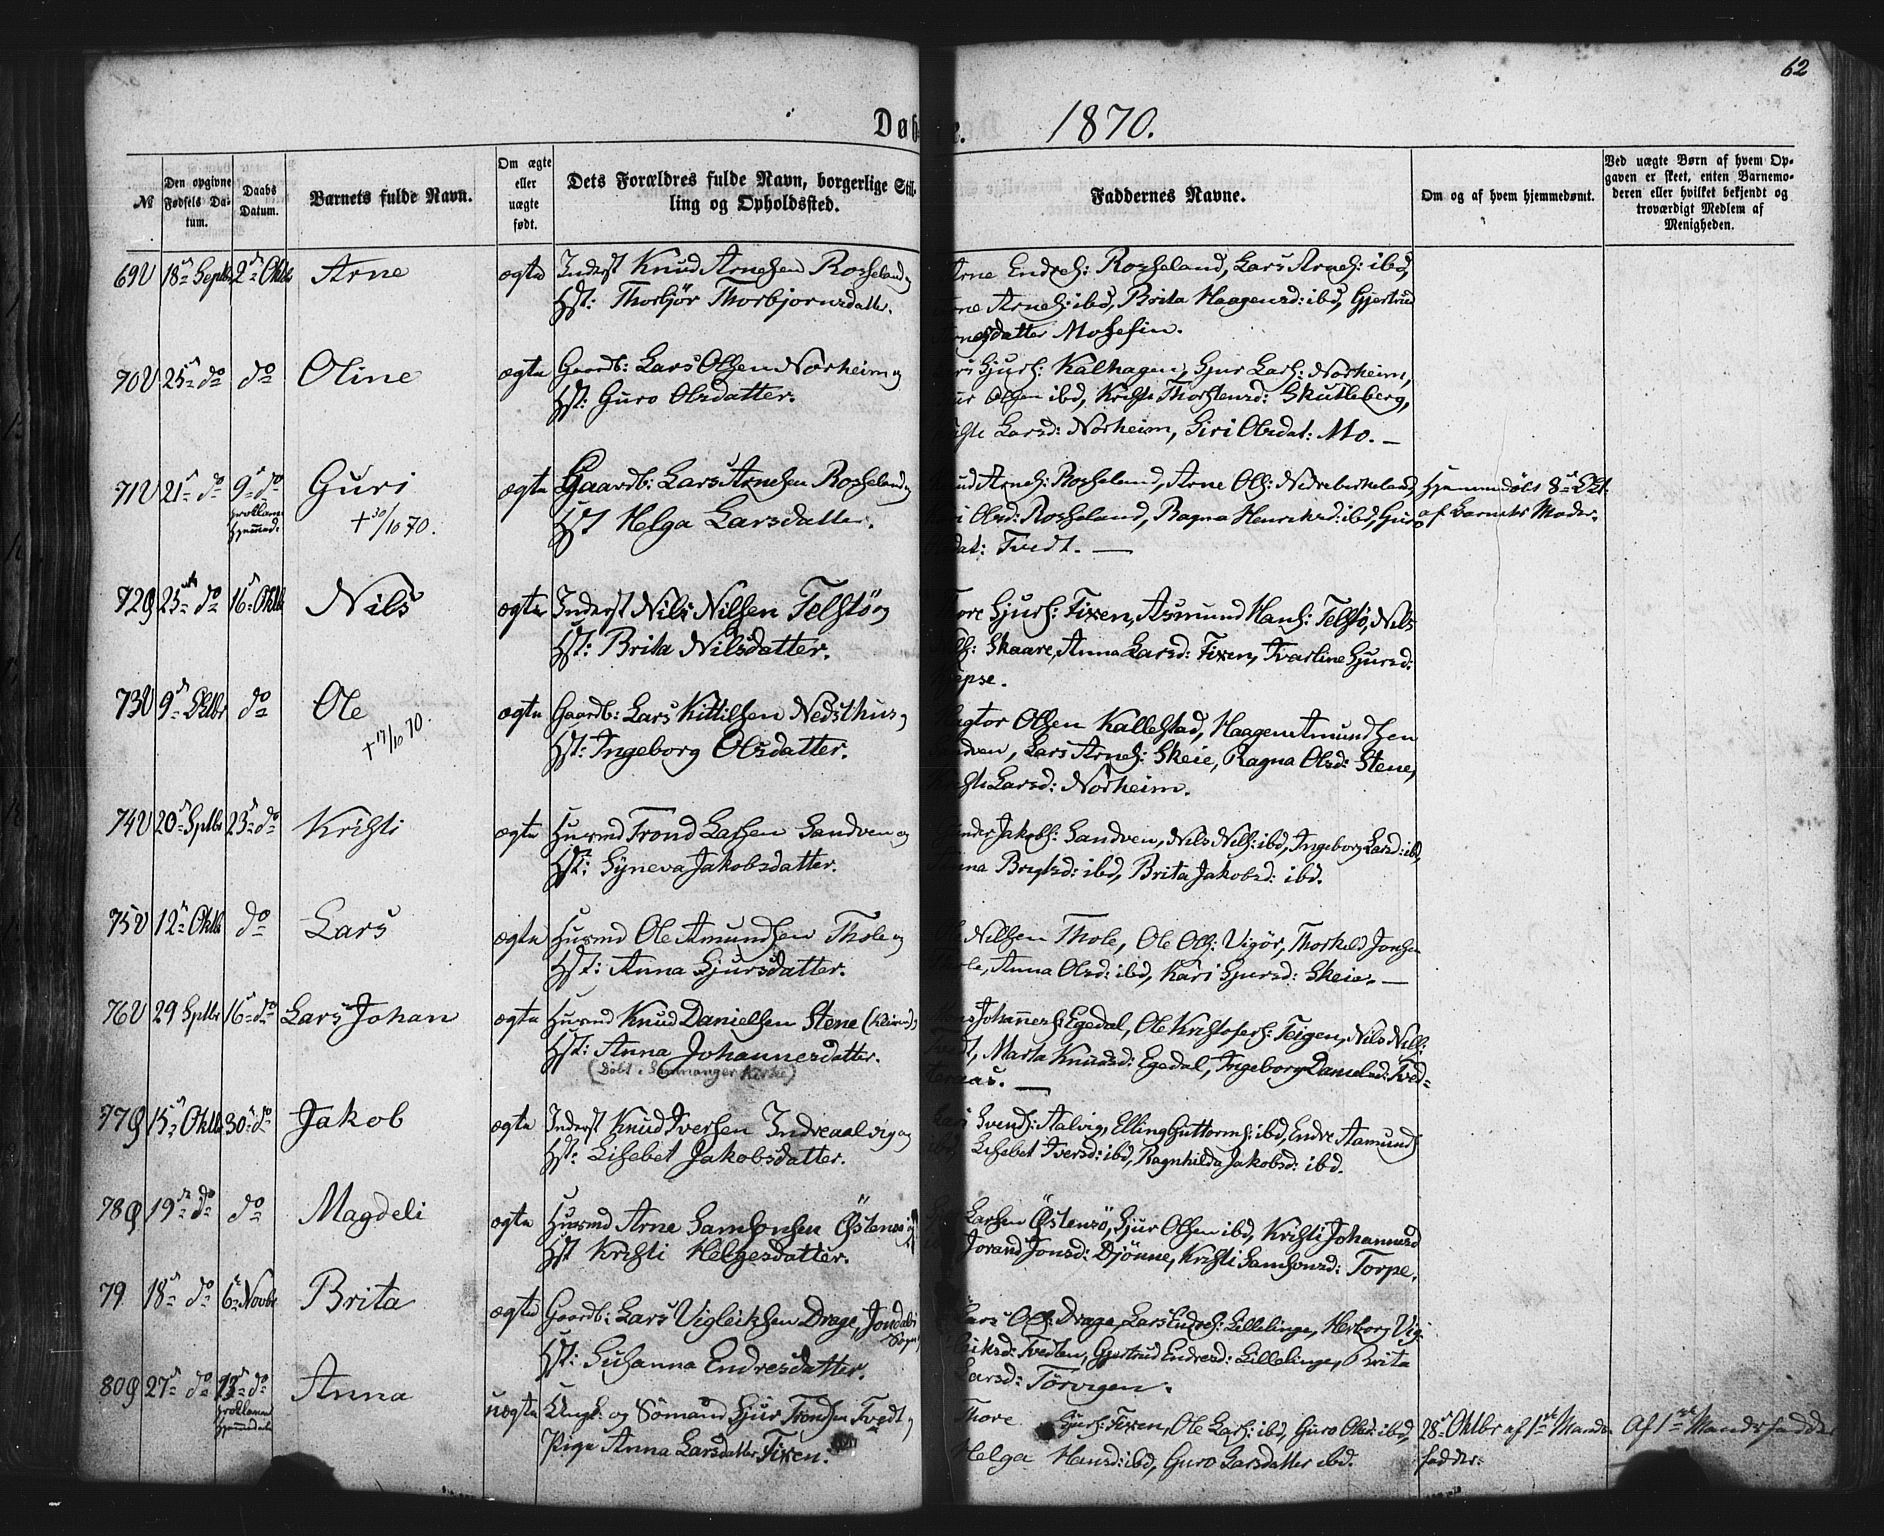 62
Døbte. 1870.
№
Den opgivne Fødsels Datum.
Daabs Datum.
Barnets fulde Navn.
Om ægte eller uægte født.
Dets Forældres fulde Navn, borgerlige Stilling og Opholdssted.
Faddernes Navne.
Om og af hvem hjemmedøbt.
Ved uægte Børn af hvem Opgaven er skeet, enten Barnemoderen eller hvilket bekjendt og troværdigt Medlem af Menigheden.
69 V 18de Septbr 2den Oktbr Arne ægte Inderst Knud Arnesen Rosseland og
Hst: Thorbjør Thorbjornsdatter.
Arne Endres: Rosseland, Lars Arnes: ibd,
Arnes: ibd, Brita Haagensd: ibd, Gjertrud
Arnesdatter Mosesin.
70 V 25de do do Oline ægte Gaardb: Lars Olsen Norheim og
Hst: Guro Olsdatter.
Sjurs: Kalhagen, Sjur Lars: Norheim,
Olsen ibd, Kristi Thorstensd: Skutleberg,
Larsd: Norheim, Siri Olsdat: Mo. —
71 V 21de do 9de do Guri ægte Gaardb: Lars Arnesen Rosseland og
proklam: hjemmed:
+ 30/10 70.
Hst Helga Larsdatter.
Knud Arnes: Rosseland, Arne Ols: Nedreberkeland,
Olsd: Rosseland, Ragna Henriksd: ibd, Guro
Tvedt. —
Hjemmedøbt 8de Okt.
af Barnets Moder.
72 Ø 25de do 16de Oktbr Nils ægte Inderst Nils Nilsen Telstø og
Hst: Brita Nilsdatter.
Thore Sjurs: Fixen, Asmund Hans: Telstø, Nils
Nils: Skaare, Anna Larsd: Fixen, Ivarline Sjursd:
73 V 9de Oktbr do Ole ægte Gaardb: Lars Kittilsen Nedsthus og
+ 17/10 70.
Hst: Ingeborg Olsdatter.
Olsen Kallestad, Haagen Amundsen
Sandven, Lars Arnes: Skeie, Ragna Olsd: Stene,
Kristi Larsd: Norheim.
74 V 20de Sptbr 23de do Kristi ægte Husmd Trond Lassen Sandven og
Hst: Syneva Jakobsdatter.
Jakobs: Sandven, Nils Nils: ibd, Ingeborg Larsd: ibd,
ibd, Brita Jakobsd: ibd.
75 V 12te Oktbr do Lars ægte Husmd Ole Amundsen Thole og
Hst: Anna Sjursdatter.
Nilsen Thole, Ole Ols: Vigør, Thorkeld Jonsen
Thole, Anna Olsd: ibd, Kari Sjursd: Skeie. —
76 V 29 Sptbr 16de do Lars Johan ægte Husmd Knud Danielsen Stene
Hst: Anna Johannesdatter.
(Døbt i Samnanger Kirke)
Johannes: Egedal, Ole Kristofers: Teigen, Nils Nils:
Tvedt, Marta Knudsd: Egedal, Ingeborg Danielsd: Tved-
teraas. —
77 Ø 15de Oktbr 30te do Jakob ægte Inderst Knud Iversen Indreaalvig og
Hst: Lisebet Jakobsdatter.
Svends: Aalvig, Elling Guttorms: ibd, Endre Aamunds:
ibd, Lisebet Iversd: ibd, Ragnhilda Jakobsd: ibd.
78 Ø 19de do do Magdeli ægte Husmd Arne Samsonsen Østensø og
Hst Kristi Helgesdatter.
Larsen Østensø, Sjur Olsen ibd, Kristi Johannesd
Jorand Jonsd: Djønne, Kristi Samsonsd: Torpe.
79 18de do 6te Novbr Brita ægte Gaardb: Lars Vigleiksen Drage, Jondals Sogn
Hst: Susanna Endresdatter.
Lars Ols: Drage, Lars Endres: Lillelinge, Herborg Vig-
leiksd: Tvedten, Gjertrud Endresd: Lillelinge, Brita
Larsd: Torvigen.
80 Ø 27de do 13de do Anna uægte Ungk: og Sømand Sjur Trondsen Tvedt og
proklam: hjemmedøbt
Pige Anna Larsdatter Fixen.
Thore Sjurs: Fixen, Ole Lars: ibd, Guro Olsd: ibd,
Helga Hansd: ibd, Guro Larsdatter ibd.
28de Oktbr af 1ste Mands-
fadder.
Af 1ste Mandsfadder